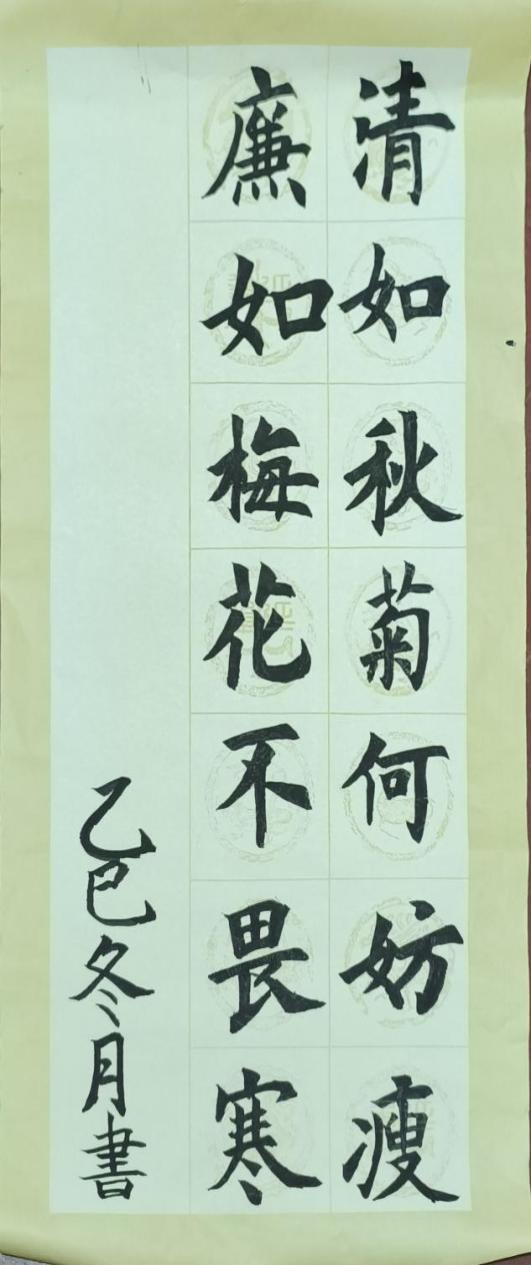 清如秋菊何妨瘦
廉如梅花不畏寒
乙巳冬月書